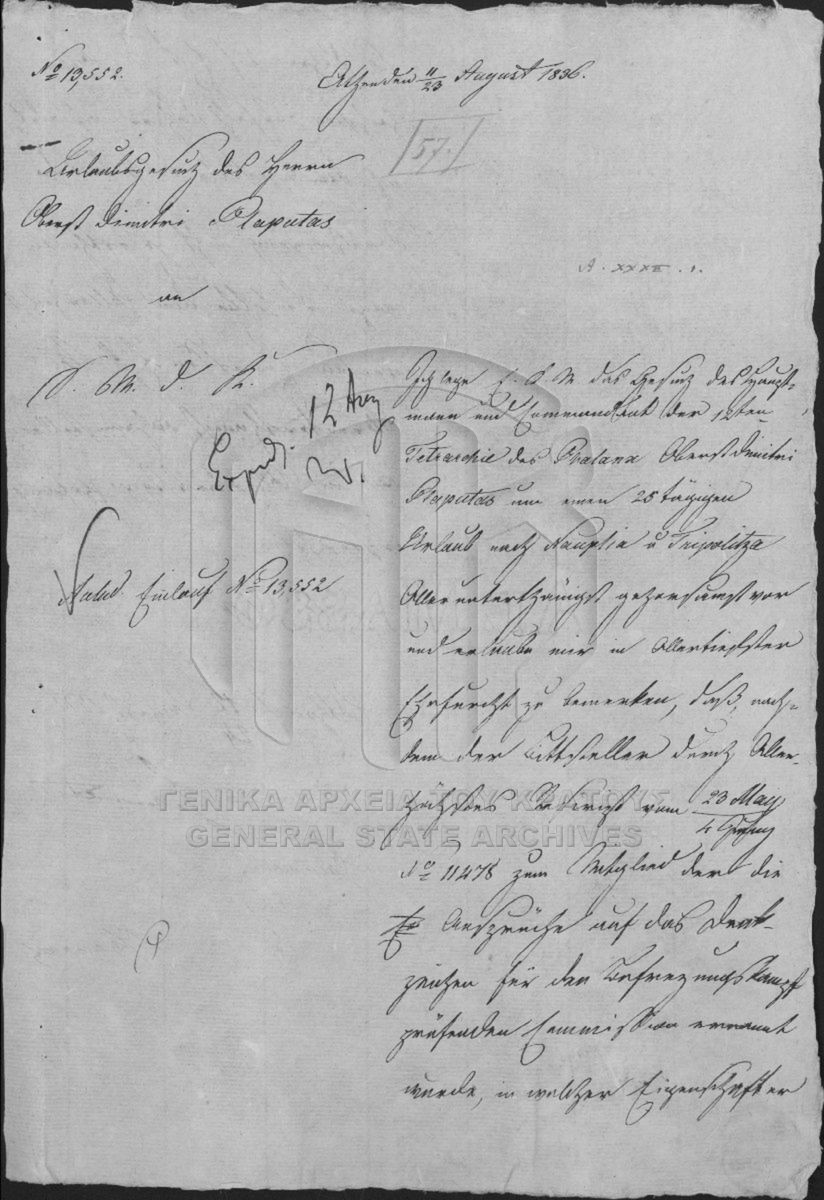 No 13,552.
Athen den 11/23 August 1836.
[57.]
Urlaubsgesuch des Herrn
Oberst Dimitri Plaputas
an
S. M. d. K.
A. XXXII. 1.
Exped. 12 Aug
Ich lege E. K. M das Gesuch des Haupt-
mann und Commandant der 12ten
Tetrarchie des Phalanx Oberst Dimitri
Plaputas um einen 25 tägigen
Urlaub nach Nauplia u Tripolitza
Allerunterthänigst gehorsamst vor
und erlaube mir in Allertiefster
Ehrfurcht zu bemerken, daß, nach-
dem der Bittsteller durch Aller-
höchstes Rescript vom 23 May/4 Juny
No 11478 zum Mitglied der die
Ansprüche auf das Denk-
zeichen für den Befreyungskampf
prüfenden Commission ernannt
wurde, in welcher Eigenschaft er
ad Einlauf No 13,552
ΓΕΝΙΚΑ ΑΡΧΕΙΑ ΤΟΥ ΚΡΑΤΟΥΣ
GENERAL STATE ARCHIVES